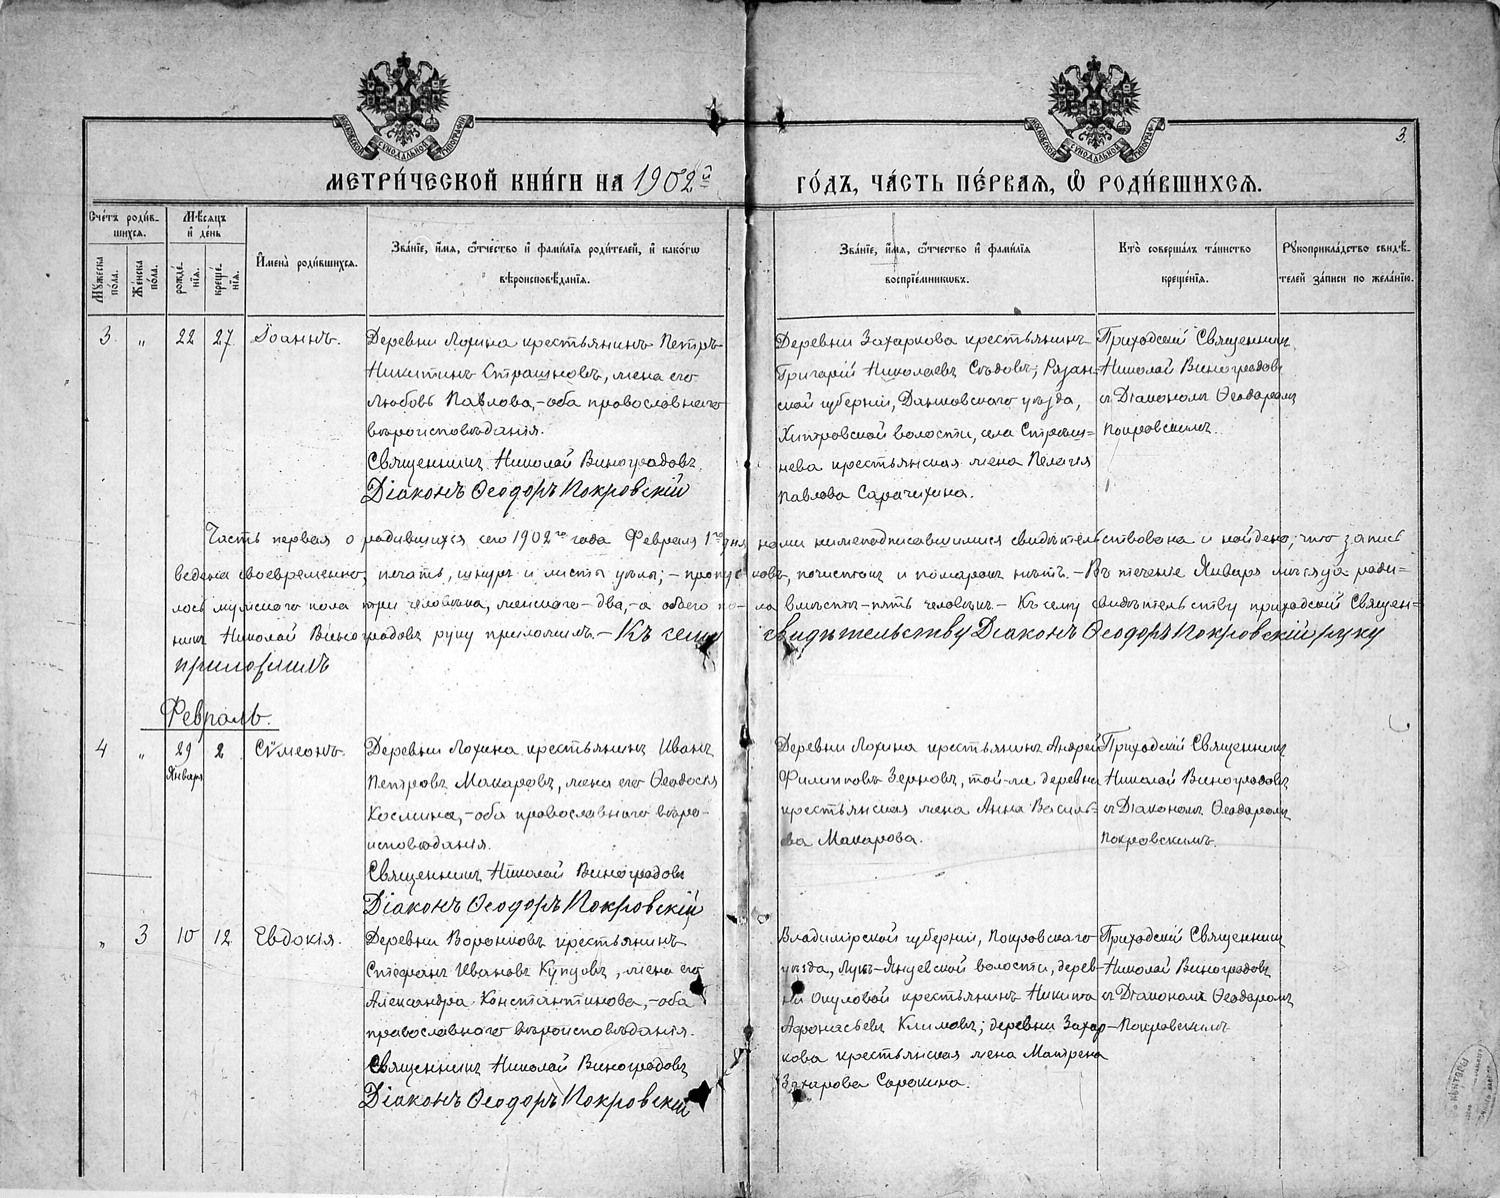 3.
МЕТРИ́ЧЕСКОЙ КНИ́ГИ НА 1902й ГО́ДЪ, ЧА́СТЬ ПЕ́РВАЯ, Ѡ РОДИ́ВШИХСѦ.
Сче́тъ роди́в-
шихсѧ.
Мꙋ́жеска по́ла.
Же́нска по́ла.
Мѣ́сѧцъ
и де́нь
рожде́нїѧ.
креще́нїѧ.
И́мена̀ роди́вшихсѧ.
Зва́нїе, и́мѧ, ѻ́тчество и фами́лїѧ роди́телей, и како́гѡ
вѣроисповѣ́данїѧ.
Зва́нїе, и́мѧ, ѻ́тчество и фами́лїѧ
воспрїе́мникѡвъ.
Кто̀ соверша́лъ та́инство
креще́нїѧ.
Рꙋкоприкла́дство свидѣ́-
телей за́писи по жела́нїю.
3 „ 22 27 Іоаннъ.
Деревни Лохина крестьянинъ Петръ
Никитинъ Страшновъ, жена его
Любовь Павлова,-оба православнаго
вѣроисповѣданія.
Священникъ Николай Виноградовъ.
Діаконъ Ѳеодоръ Покровскій
Деревни Захаркова крестьянинъ
Григорій Николаевъ Сѣдовъ; Рязан-
ской губерніи, Данковскаго уѣзда,
волости, села
нева крестьянская жена Пелагія
Павлова Сарачихина.
Приходскій Священникъ
Николай Виноградовъ
съ Діакономъ Ѳеодоромъ
Покровскимъ.
Часть первая о родившихся сего 1902го года Февраля 1го дня нами нижеподписавшимися свидѣтельствована и найдено, что запись
ведена своевременно, печать, шнуръ и листы цѣлы; – пропусковъ, почистокъ и помарокъ нѣтъ. – Въ теченіе Января мѣсяца роди-
лось мужскаго пола три человѣка, женскаго – два, – а обоего пола вмѣстѣ – пять человѣкъ. – Къ сему свидѣтельству приходскій Священ-
никъ Николай Виноградовъ руку приложилъ. – Къ сему свидѣтельству Діаконъ Ѳеодоръ Покровскій руку
приложилъ
Февраль.
4 „ 29 Января 2 Сѵмеонъ.
Деревни Лохина крестьянинъ Иванъ
Петровъ Макаровъ, жена его Ѳеодосія
Космина,-оба православнаго вѣро-
исповѣданія.
Священникъ Николай Виноградовъ
Діаконъ Ѳеодоръ Покровскій
Деревни Лохина крестьянинъ Андрей
Филипповъ Зерновъ, той-же деревни
крестьянская жена Анна Василь-
ева Макарова.
Приходскій Священникъ
Николай Виноградовъ
съ Діакономъ Ѳеодоромъ
Покровскимъ.
„ 3 10 12 Евдокія.
Деревни Воронковъ крестьянинъ
Стефанъ Ивановъ Купцовъ, жена его
Александра Константинова,-оба
православнаго вѣроисповѣданія.
Священникъ Николай Виноградовъ
Діаконъ Ѳеодоръ Покровскій
Владимірской губерніи, Покровскаго
уѣзда, волости, дерев-
ни Окуловой крестьянинъ Никита
Афонасьевъ Климовъ; деревни Захар-
кова крестьянская жена Матрена
Захарова Сорокина.
Приходскій Священникъ
Николай Виноградовъ
съ Діакономъ Ѳеодоромъ
Покровскимъ